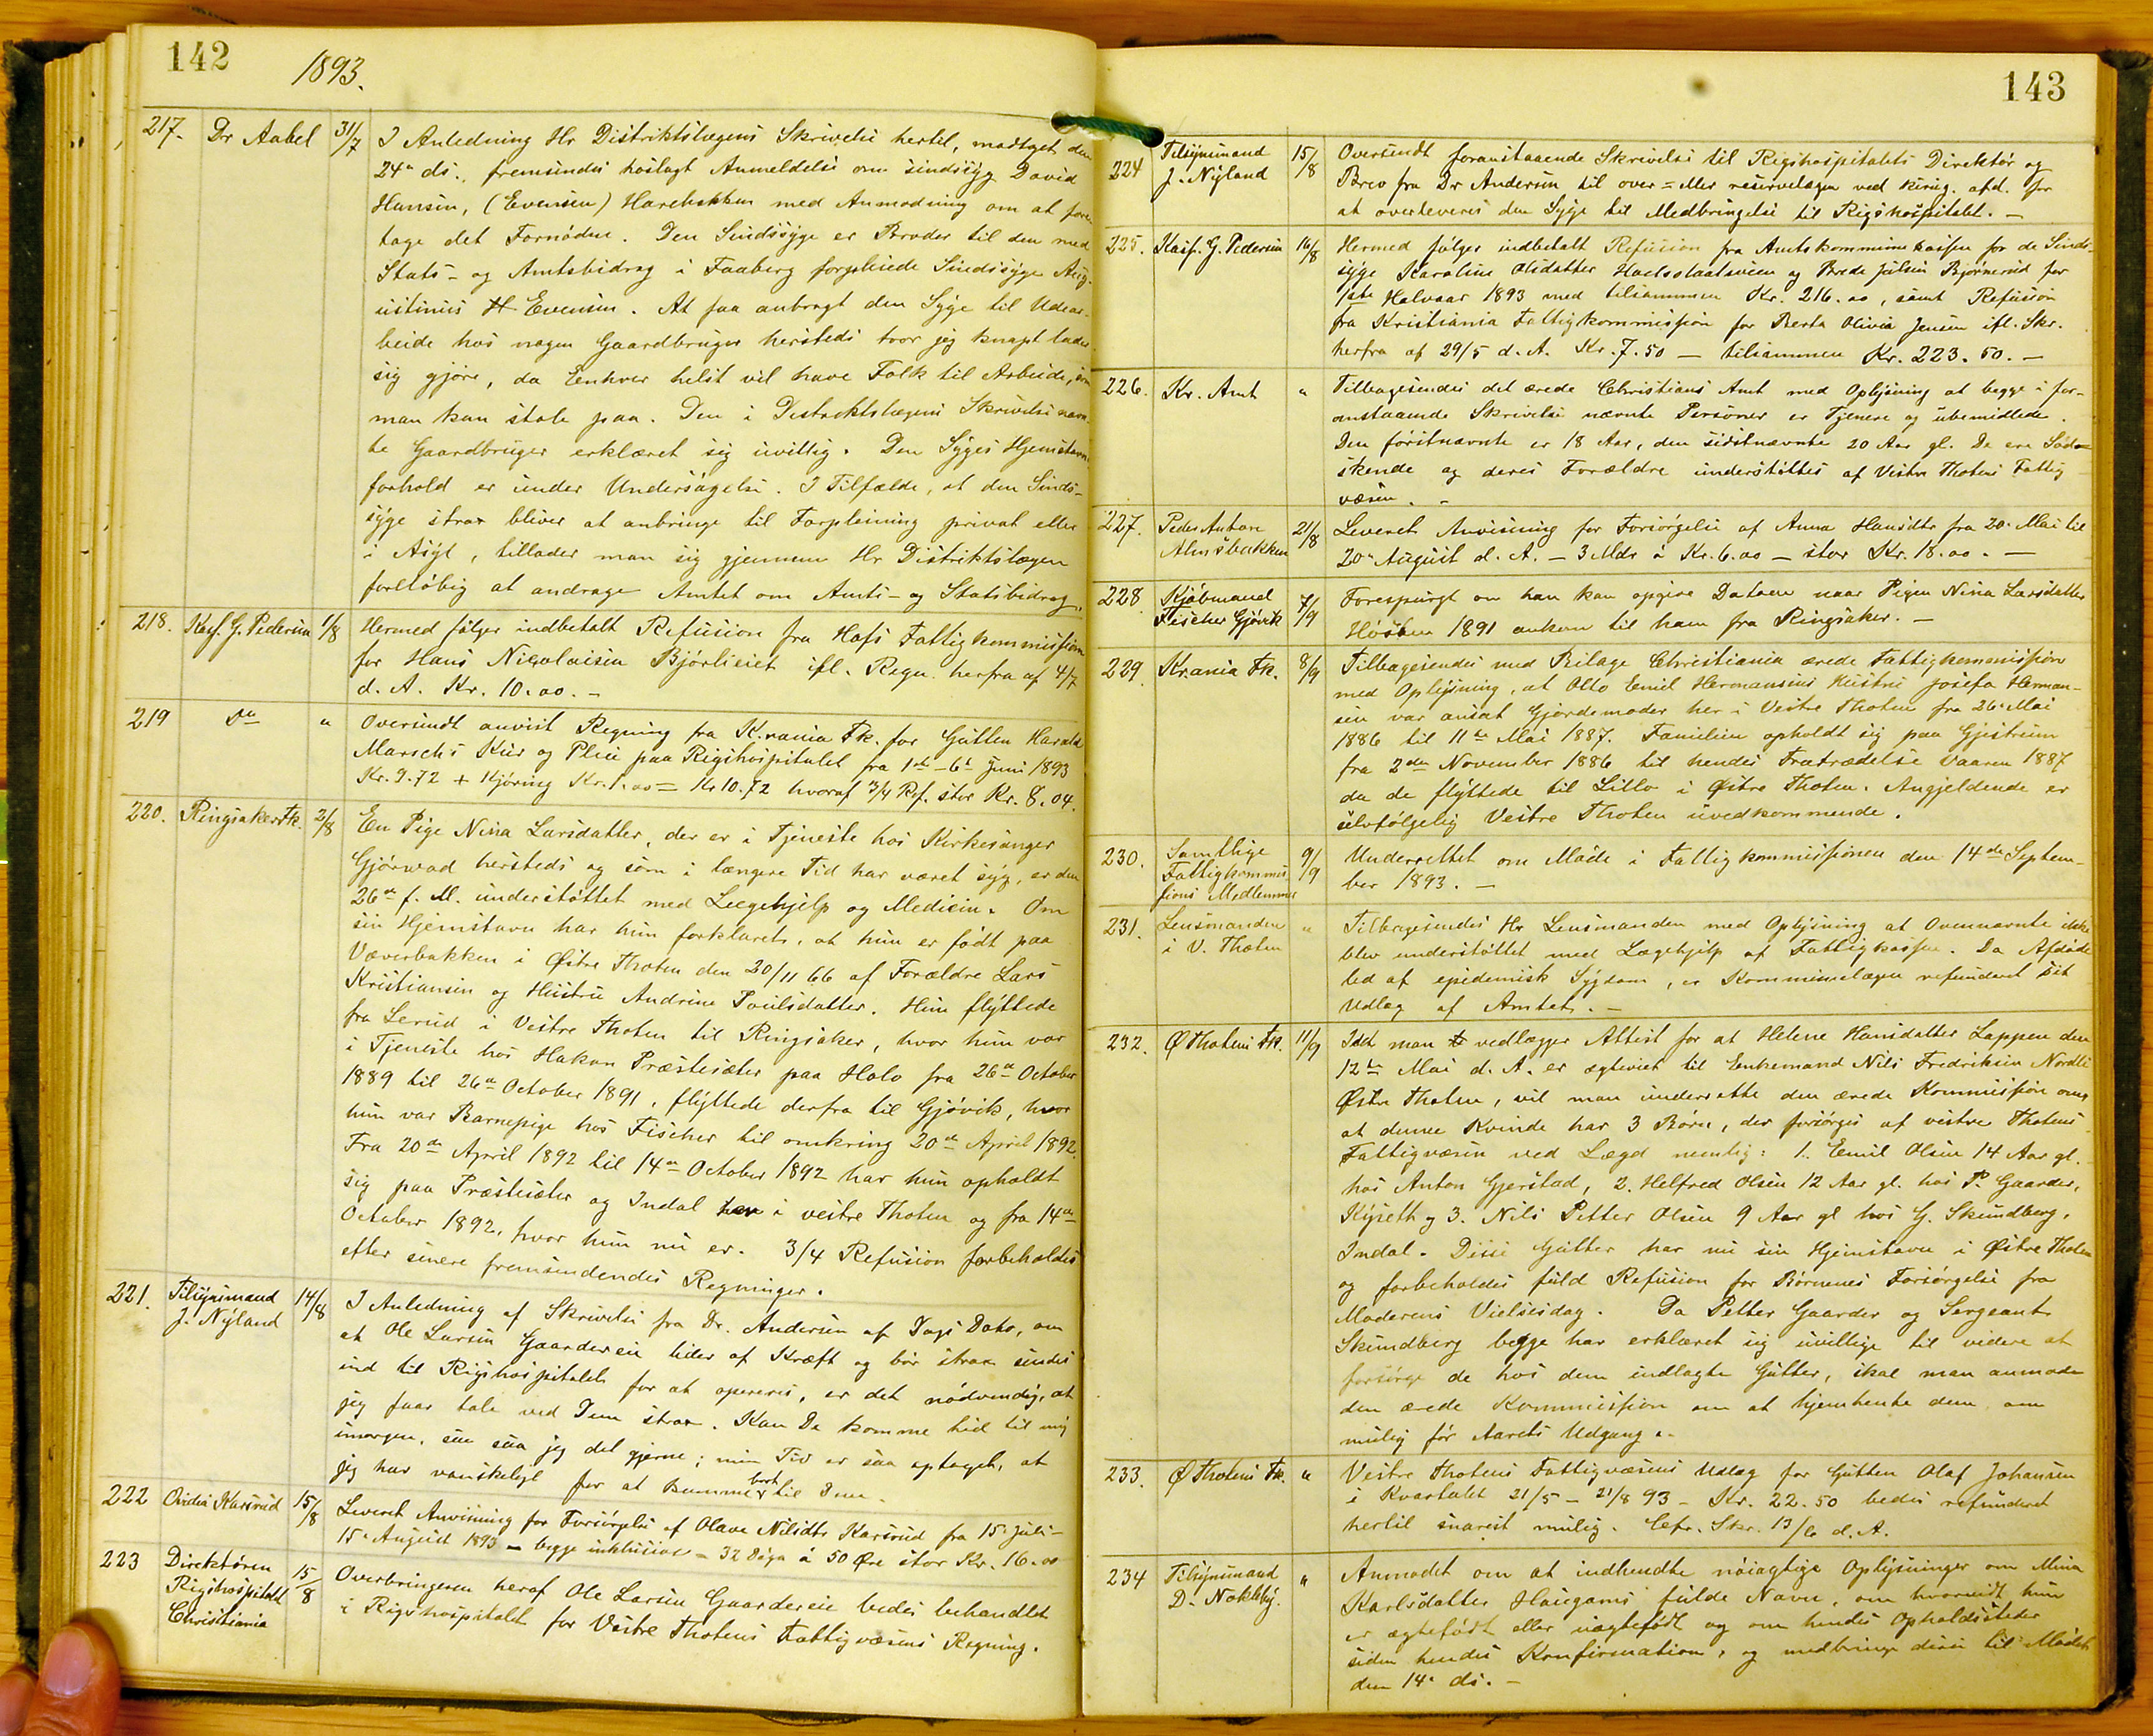 142
1893.
217. Dr Aabel 31/7 I Anledning Hr Distriktslægens Skrivelse hertil, modtaget den
24de ds., fremsendes hoslagt Anmeldelse om sindssyg David
Hansen, (Evensen) Harebakken med Anmodning om at fore-
tage det Fornødne. Den Sindssyge er Broder til den med
Stats- og Amtsbidrag i Faaberg forpleiede Sindssyge Aug-
ustinus H Evensen. At faa anbragt den Syge til Udear-
beide hos nogen Gaardbruger hersteds tror jeg knapt lader
sig gjøre, da Enhver helst vil have Folk til Arbeide, som
man kan stole paa. Den i Distriktslægens Skrivelse nævn-
te Gaardbruger erklæret sig uvillig. Den Syges Hjemstavns-
forhold er under Undersøgelse. I Tilfælde, at den Sinds-
syge strax bliver at anbringe til Forpleining privat eller
i Asyl, tillader man sig gjennem Hr Distriktslægen
foreløbig at andrage Amtet om Amts- og Statsbidrag.
218. Kasf. G. Pedersen 1/8 Hermed følger indbetalt Refusion fra Hofs Fattigkommission
for Hans Nicolaisen Bjørlieiet ifl. Regn. herfra af 4/7
d. A. Kr. 10.00. -
219 Do " Oversendt anvist Regning fra K.rania Fk. for Gutten Harald
Marschs Kur og Pleie paa Rigshospitalet fra 1ste - 6te Juni 1893
Kr. 9.72 + Kjøring Kr. 1.00 = Kr 10.72 hvoraf 3/4 Ref. stor Kr. 8.04.
220. Ringsaker Fk. 2/8 En Pige Nina Larsdatter, der er i Tjeneste hos Kirkesanger
Gjørwad hersteds og som i længere Tid har været syg, er den
26de f. M. understøttet med Lægehjelp og Medicin. Om
sin Hjemstavn har hun forklaret, at hun er født paa
Væverbakken i Østre Thoten den 20/11 66 af Forældre Lars
Kristiansen og Hustru Andrine Poulsdatter. Hun flyttede
fra Lerud i Vestre Thoten til Ringsaker, hvor hun var
i Tjeneste hos Hakon Præstesæter paa Holo fra 26de October
1889 til 26de October 1891, flyttede derfra til Gjøvik, hvor
hun var Barnepige hos Fischer til omkring 20de April 1892.
Fra 20de April 1892 til 14de October 1892 har hun opholdt
sig paa Præstesæter og Indal her i vestre Thoten og fra 14de
October 1892, hvor hun nu er. 3/4 Refusion forbeholdes
efter senere fremsendendes Regninger.
221. Tilsynsmand J. Nyland 14/8 I Anledning af Skrivelse fra Dr. Andersen af Dags Dato, om
at Ole Larsen Gaardereie lider af Kræft og bør strax sendes
ind til Rigshospitalet for at opereres, er det nødvendig, at
jeg faar tale ved Dem strax. Kan De komme hid til mig
imorgen, saa saa jeg det gjerne; min Tid er saa optaget, at
jeg har vanskeligt for at komme bort til Dem.
222 Ovidia Karsrud 15/8 Leveret Anvisning for Forsørgelse af Olave Nilsdtr Karsrud fra 15. Juli -
15de August 1893 - begge inklusive = 32 Døgn á 50 Øre stor Kr. 16.00
223 Direktøren Rigshospitalet Christiania 15/8 Overbringeren heraf Ole Larsen Gaardereie bedes behandlet
i Rigshospitalet for Vestre Thotens Fattigvæsens Regning.
143
224 Tilsynsmand J. Nyland 15/8 Oversendt foranstaaende Skrivelse til Rigshospitalets Direktør og
Brev fra Dr Andersen til over = eller reservelægen ved kirug. afd. for
at overleveres den Syge til Medbringelse til Rigshospitalet. -
225. Kasf. G. Pedersen 16/8 Hermed følger indbetalt Refusion fra Amtskommunekassen for de Sinds-
syge Karoline Olsdatter Haclsstaatsveen og Brede Julsen Bjørnerud for
1ste Halvaar 1893 med tilsammen Kr. 216.00, samt Refusion
fra Kristiania Fattigkommission for Berta Olivia Jensen ifl. Skr.
herfra af 29/5 d. A. Kr. 7.50 - tilsammen Kr. 223.50. -
226. Kr. Amt " Tilbagesendes det ærede Christians Amt med Oplysning at begge i for-
anstaaende Skrivelse nævnte Personer er Tjenere og ubemidlede.
Den førstnævnte er 18 Aar, den sidstnævnte 20 Aar gl. De ere Søds-
skende og deres Forældre understøttes af Vestre Thotens Fattig-
væsen. -
227. Peder Antare Almsbakken 21/8 Leveret Anvisning for Forsørgelse af Anna Hansdtr fra 20. Mai til
20de August d. A. - 3 Mdr á Kr. 6.00 - stor Kr. 18.00. -
228 Kjøbmand Fischer Gjøvik 7/9 Forespurgt om han kan opgive Datoen naar Pigen Nina Larsdatter
Høsten 1891 ankom til ham fra Ringsaker. -
229 Kr.ania Fk. 8/9 Tilbagesendes med Bilage Christiania ærede Fattigkommission
med Oplysning, at Otto Emil Hermansens Hustru Josefa Herman-
sen var ansat Gjordemoder her i Vestre Thoten fra 26. Mai
1886 til 11te Mai 1887. Familien opholdt sig paa Gjestrum
fra 2den November 1886 til hendes Fratrædelse Vaaren 1887
da de flyttede til Lillo i Østre Thoten. Angjeldende er
selvfølgelig Vestre Thoten uvedkommende.
230. Samtlige Fattigkommissions Medlemmer 9/9 Underrettet om Møde i Fattigkommissionen den 14de Septem-
ber 1893. -
231. Lensmanden i V. Thoten " Tilbagesendes Hr Lensmanden med Oplysning at Ovennævnte ikke
blev understøttet med Lægehjelp af Fattigkassen. Da Afdøde
led af epidemisk Sygdom, er Kommunelægen refunderet sit
Udlæg af Amtet. -
232. Ø Thotens Fk. 11/9 Idet man vedlægger Attest for at Helene Hansdatter Lappen den
12te Mai d. A. er ægteviet til Enkemand Nils Fredriksen Nordli
Østre Thoten, vil man underrette den ærede Kommission om,
at denne Kvinde har 3 Børn, der forsørges af vestre Thotens
Fattigvæsen ved Lægd nemlig: 1. Emil Olsen 14 Aar gl.
hos Anton Gjerstad, 2. Helfred Olsen 12 Aar gl. hos P. Gaarder,
Kyseth og 3. Nils Petter Olsen 9 Aar gl hos G. Skundberg,
Indal. Disse Gutter har nu sin Hjemstavn i Østre Thoten
og forbeholdes fuld Refusion for Børnenes Forsørgelse fra
Moderens Vielsesdag. Da Petter Gaarder og Sergeant
Skundberg begge har erklæret sig uvillige til videre at
forsørge de hos dem indlagte Gutter, skal man anmode
den ærede Kommission om at hjemhente dem, om
mulig før Aarets Udgang. -
233. Ø Thotens Fk. " Vestre Thotens Fattigvæsens Udlæg for Gutten Olaf Johansen
i Kvartalet 21/5 - 21/8 93 - Kr. 22.50 bedes refunderet
hertil snarest mulig. Cfr. Skr. 13/6 d. A.
234 Tilsynsmand D. Nøkleby. " Anmodet om at indhendte nøiagtige Oplysninger om Mina
Karlsdatter Haugans fulde Navn, om hvorvidt hun
er ægtefødt eller uægtefødt og om hendes Opholdssteder
siden hendes Konfirmation, og medbringe disse til Mødet
den 14de ds. -